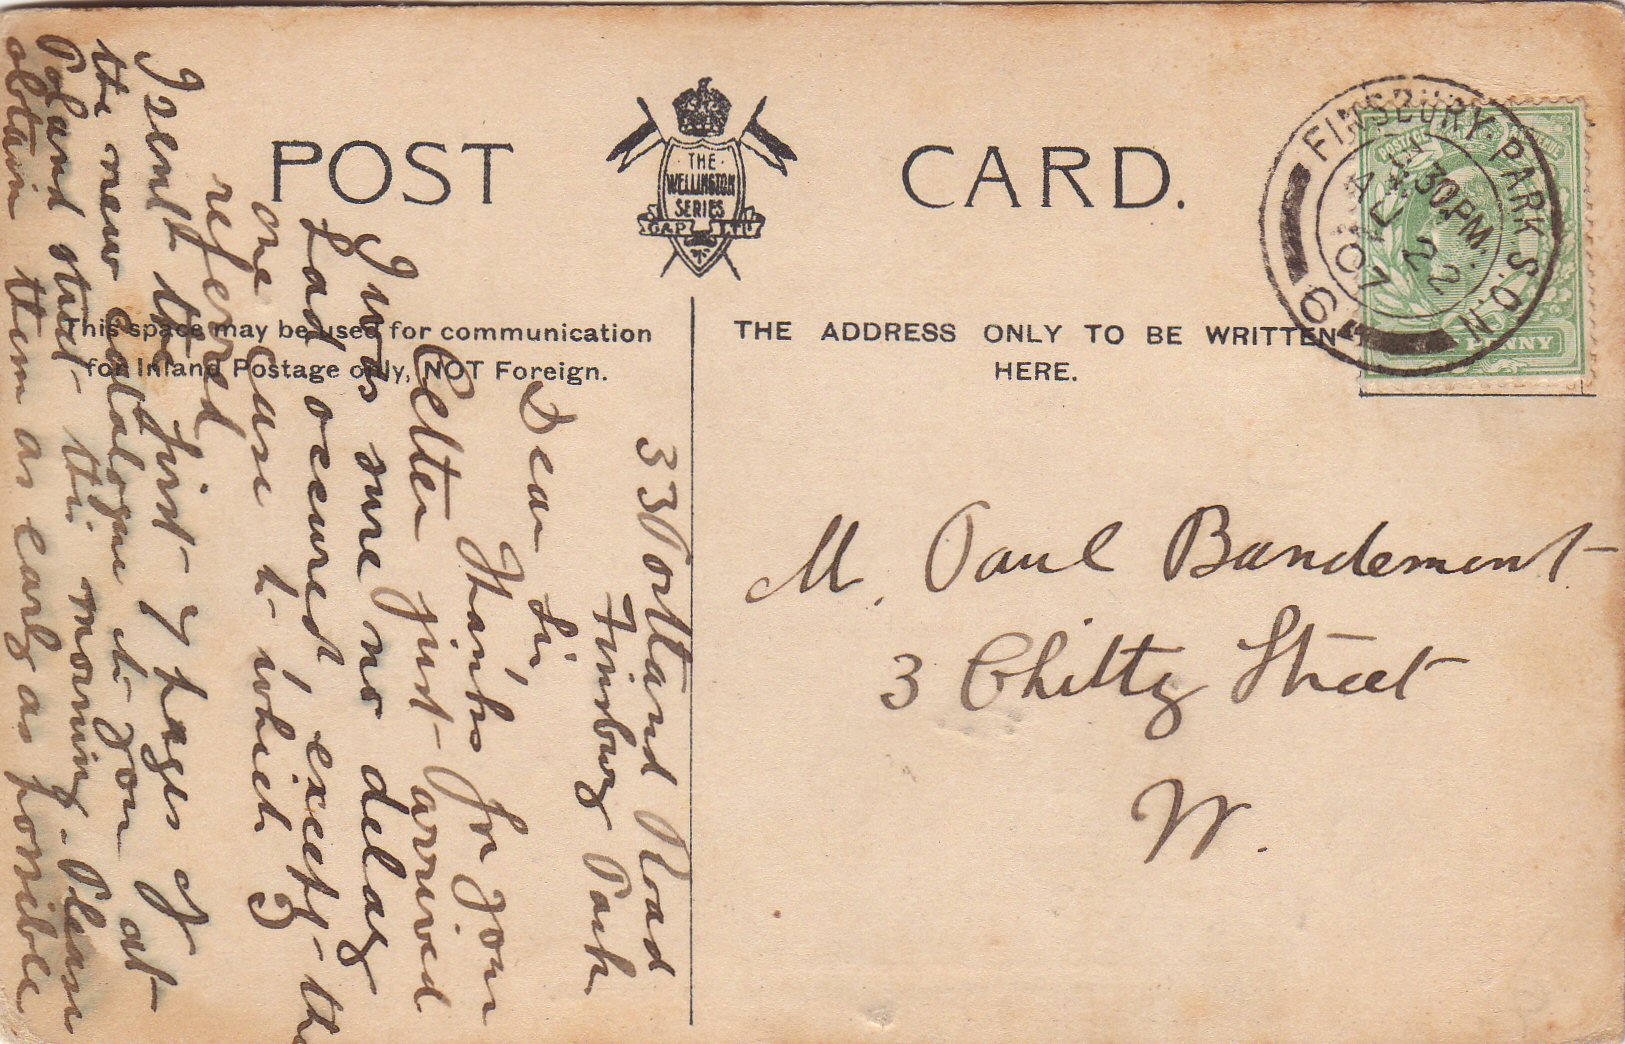 POST CARD.
· THE ·
WELLINGTON
SERIES
G&P LTD
This space may be used for communication
for Inland Postage only, NOT Foreign.
THE ADDRESS ONLY TO BE WRITTEN
HERE.
FINSBURY·PARK S.O. N
30 PM
22
07
6
POSTAGE REVENUE
PENNY
M. Paul Bandement
3 Chitty Street
W.
33 Portland Road
Finsbury Park
Dear Sir,
Thanks for your
letter just arrived
I was sure no delay
had occured except the
one Case to which I
refered
I sent the first 7 pages of
the new Catalogue to you at
Poland street this morning. Please
obtain them as early as possible